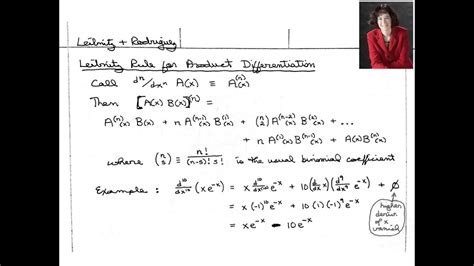 Leibnitz + Rodriguez
Leibnitz Rule for Product Differentiation
Call dⁿ/dxⁿ A(x) ≡ A⁽ⁿ⁾(x)
Then [A(x) B(x)]⁽ⁿ⁾ =
A⁽ⁿ⁾(x) B(x) + n A⁽ⁿ⁻¹⁾(x) B⁽¹⁾(x) + (n 2) A⁽ⁿ⁻²⁾(x) B⁽²⁾(x) + ...
+ n A⁽¹⁾(x) B⁽ⁿ⁻¹⁾(x) + A(x) B⁽ⁿ⁾(x)
where (n s) ≡ n!/(n-s)! s! is the usual binomial coefficient
Example: d¹⁰/dx¹⁰ (x e⁻ˣ) = x d¹⁰/dx¹⁰ e⁻ˣ + 10 (d/dx x)(d⁹/dx⁹ e⁻ˣ) + 0
= x (-1)¹⁰ e⁻ˣ + 10 (1) (-1)⁹ e⁻ˣ
= x e⁻ˣ - 10 e⁻ˣ
higher
derivs
of x
vanish